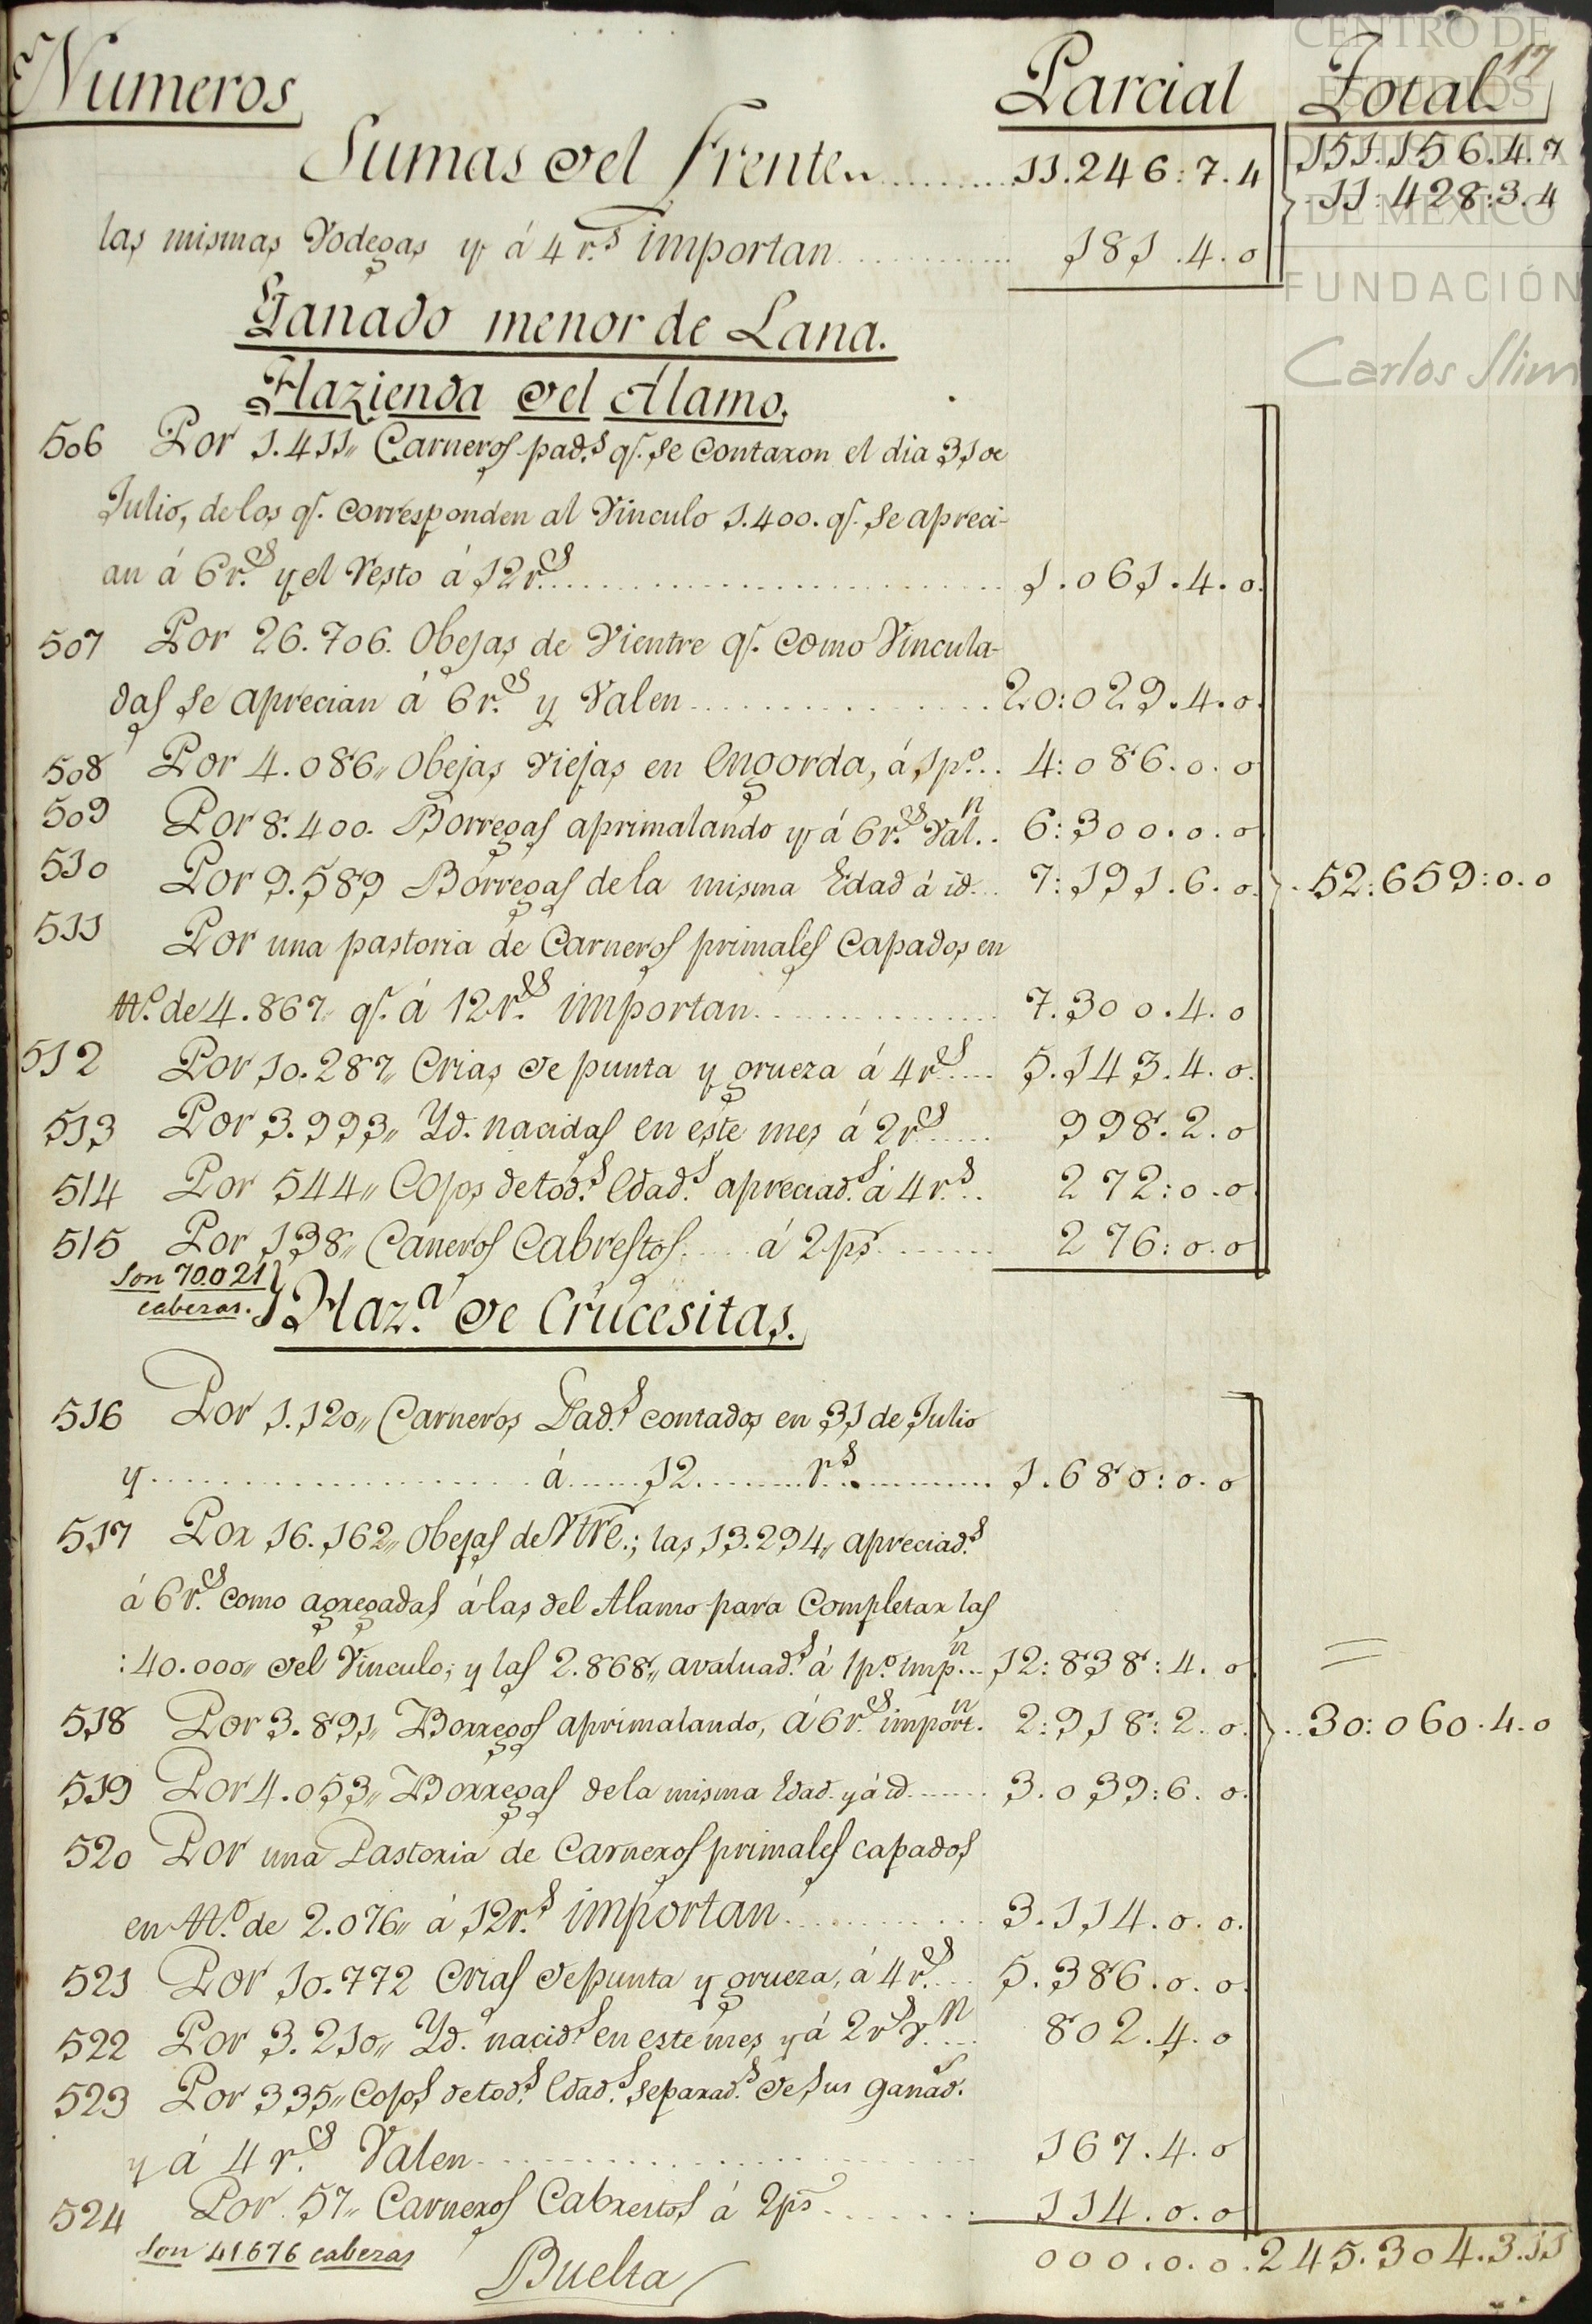 Numeros Parcial Total 17
Sumas del frente 11.246:7.4 151.156.4.7
11:428:3.4
las mismas Vodegas y á 4 r.s importan 181.4.0
Ganado menor de Lana.
Hazienda del Alamo.
506 Por 1.411,, Carneros pad.s q.e se contaron el dia 31 de
Julio, de los q.e corresponden al Vinculo 1.400. q.e se apreci-
an á 6 r.s y el Resto á 12 r.s 1.061.4.0
507 Por 26.706. Obejas de Vientre q.e como Vincula-
das se aprecian á 6 r.s y Valen 20:029.4.0
508 Por 4.086,, Obejas Viejas en Engorda, á 1 p.o 4:086.0.0
509 Por 8.400. Borregas aprimalando y á 6 r.s Val.n 6:300.0.0
510 Por 9.589 Borregas de la misma Edad á id. 7:191.6.0 52:659:0.0
511 Por una pastoria de Carneros primales Capados en
N.o de 4.867,, q.e á 12 r.s importan 7.300.4.0
512 Por 10.287,, Crias de punta y grueza á 4 r.s 5.143.4.0
513 Por 3.993,, Yd. nacidas en este mes á 2 r.s 998.2.0
514 Por 544,, Cojos de tod.s Edad.s apreciad.s á 4 r.s 272:0.0
515 Por 138,, Caneros Cabrestos á 2 ps 276:0.0
Son 70.021
cabezas.
Haz.a de Crucesitas.
516 Por 1.120,, Carneros Pad.s contados en 31 de Julio
y á 12 r.s 1.680:0.0
517 Por 16.162,, Obejas de Vtre.; las 13.294,, apreciad.s
á 6 r.s como agregadas á las del Alamo para Completar las
:40.000,, del Vinculo; y las 2.868,, avaluad.s á 1 p.o imp.n 12:838:4.0
518 Por 3.891,, Borregos aprimalando, á 6 r.s import.n 2:918:2.0 30:060.4.0
519 Por 4.053,, Borregas de la misma Edad y á id. 3.039:6.0
520 Por una Pastoria de Carneros primales capados
en N.o de 2.076,, á 12 r.s importan 3.114.0.0
521 Por 10.772 Crias de punta y grueza, á 4 r.s 5.386.0.0
522 Por 3.210,, Yd. nacid.s en este mes y á 2 r.s V.n 802.4.0
523 Por 335,, Cojos de tod.s Edad.s separad.s de sus ganad.s
y á 4 r.s Valen 167.4.0
524 Por 57,, Carneros Cabrestos á 2 ps 114.0.0
Son 41676 cabezas
Buelta 000.0.0. 245.304.3.11
CENTRO DE
ESTUDIOS
DE HISTORIA
DE MÉXICO
FUNDACIÓN
Carlos Slim